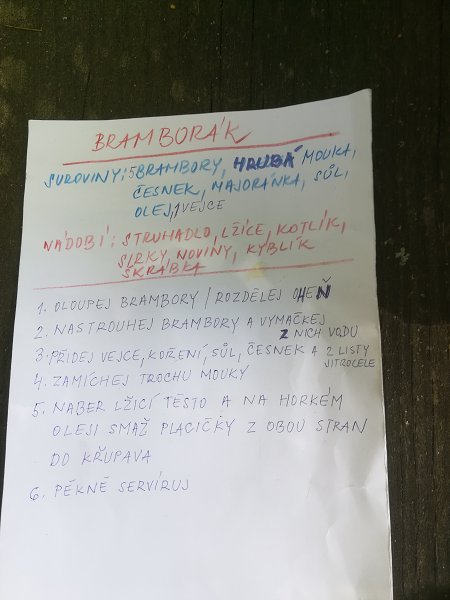 BRAMBORÁK
SUROVINY: 5 BRAMBORY, HRUBÁ MOUKA,
ČESNEK, MAJORÁNKA, SŮL,
OLEJ, 1 VEJCE
NÁDOBÍ: STRUHADLO, LŽÍCE, KOTLÍK,
SIRKY, NOVINY, KYBLÍK
ŠKRABKA
1. OLOUPEJ BRAMBORY / ROZDĚLEJ OHEŇ
2. NASTROUHEJ BRAMBORY A VYMAČKEJ
Z NICH VODU
3. PŘIDEJ VEJCE, KOŘENÍ, SŮL, ČESNEK A 2 LISTY
JITROCELE
4. ZAMÍCHEJ TROCHU MOUKY
5. NABER LŽÍCÍ TĚSTO A NA HORKÉM
OLEJI SMAŽ PLACIČKY Z OBOU STRAN
DO KŘUPAVA
6. PĚKNĚ SERVÍRUJ